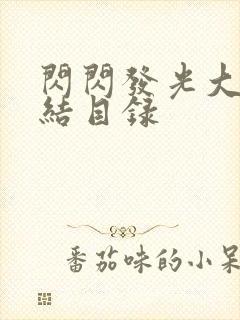 閃閃發光大
結目錄
番茄味的小呆